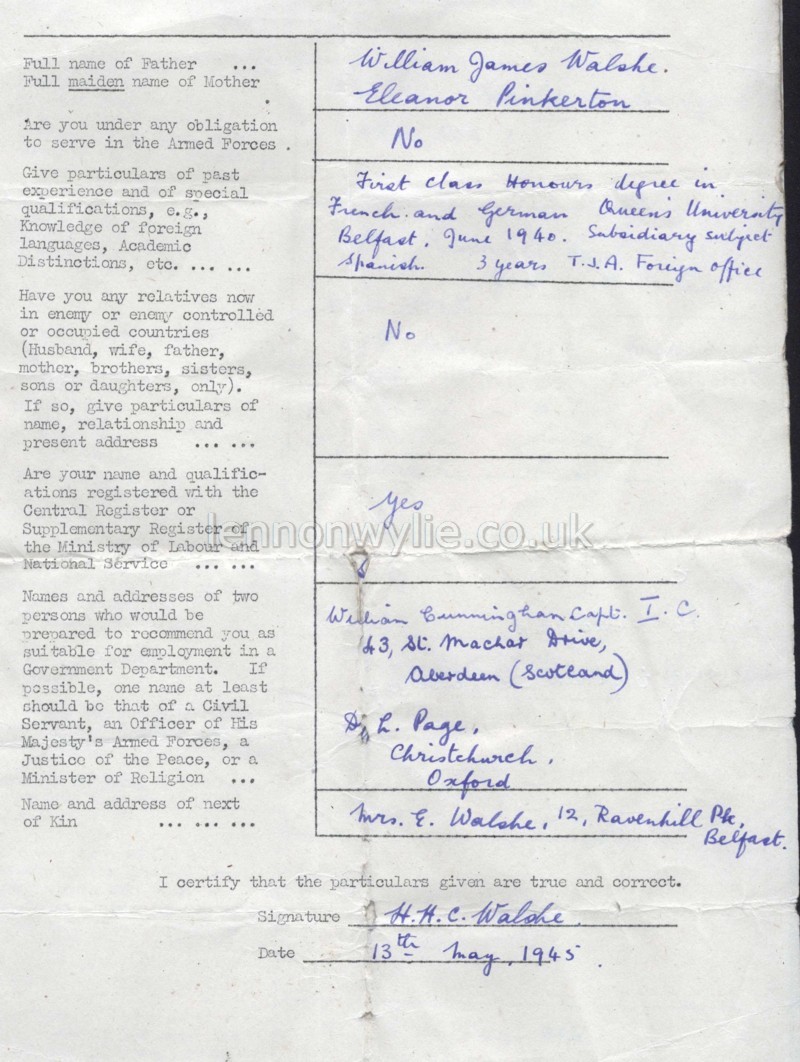 Full name of Father ... William James Walshe.
Full maiden name of Mother Eleanor Pinkerton
Are you under any obligation
to serve in the Armed Forces . No
Give particulars of past
experience and of special
qualifications, e.g.,
Knowledge of foreign
languages, Academic
Distinctions, etc. ... ...
First class Honours degree in
French and German Queen's University
Belfast, June 1940. Subsidiary subject
Spanish. 3 years T.J.A. Foreign office
Have you any relatives now
in enemy or enemy controlled
or occupied countries
(Husband, wife, father,
mother, brothers, sisters,
sons or daughters, only).
If so, give particulars of
name, relationship and
present address ... ...
No
Are your name and qualific-
ations registered with the
Central Register or
Supplementary Register of
the Ministry of Labour and
National Service ... ...
yes
lennonwylie.co.uk
Names and addresses of two
persons who would be
prepared to recommend you as
suitable for employment in a
Government Department. If
possible, one name at least
should be that of a Civil
Servant, an Officer of His
Majesty's Armed Forces, a
Justice of the Peace, or a
Minister of Religion ...
William Cunningham Capt. I. C.
43, St. Machar Drive,
Aberdeen (Scotland)
D. L. Page,
Christchurch,
Oxford
Name and address of next
of Kin ... ... ...
Mrs. E. Walshe, 12, Ravenhill Pk,
Belfast.
I certify that the particulars given are true and correct.
Signature H.H.C. Walshe.
Date 13th May, 1945.